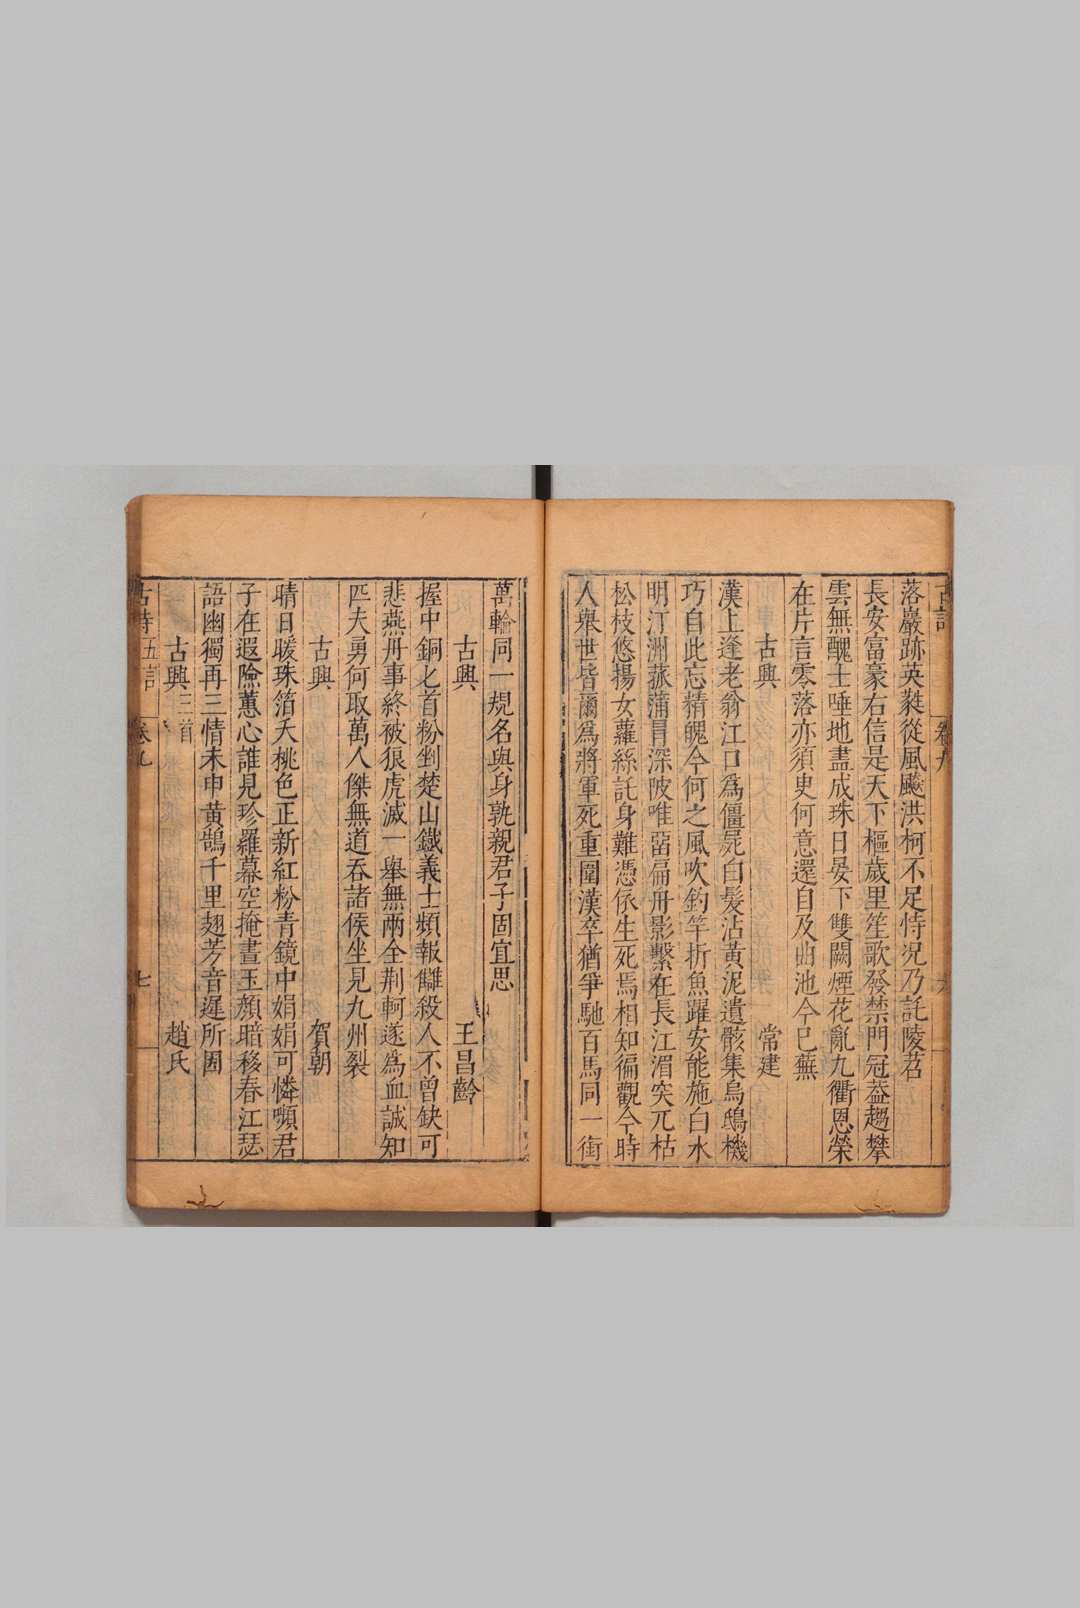 落巖跡英蕤從風飈洪柯不足恃況乃託陵苕
長安富豪右信是天下樞歲里笙歌發禁門冠葢趨攀
雲無醜士唾地盡成珠日晏下雙闕煙花亂九衢恩榮
在片言零落亦須臾何意還自及曲池今巳蕪
古興 常建
漢上逢老翁江口爲僵屍白髮沾黃泥遺骸集烏鴟機
巧自此忘精魄今何之風吹釣竿折魚躍安能施白水
明汀洲菰蒲冐深陂唯畱扁舟影繫在長江湄突兀枯
松枝悠揚女蘿絲託身難憑依生死焉相知徧觀今時
人舉世皆爾爲將軍死重圍漢卒猶爭馳百馬同一銜
萬輪同一規名與身孰親君子固宜思
古興 王昌齡
握中銅匕首粉剉楚山鐵義士頻報讎殺人不曾缺可
悲燕丹事終被狼虎滅一舉無兩全荆軻遂爲血誠知
匹夫勇何取萬人傑無道吞諸侯坐見九州裂
古興 賀朝
晴日暖珠箔夭桃色正新紅粉青鏡中娟娟可憐嚬君
子在遐險蕙心誰見珍羅幕空掩晝玉顏暗移春江瑟
語幽獨再三情未申黃鵠千里翅芳音遲所因
古興三首 趙氏
古詩 五言 卷九 七